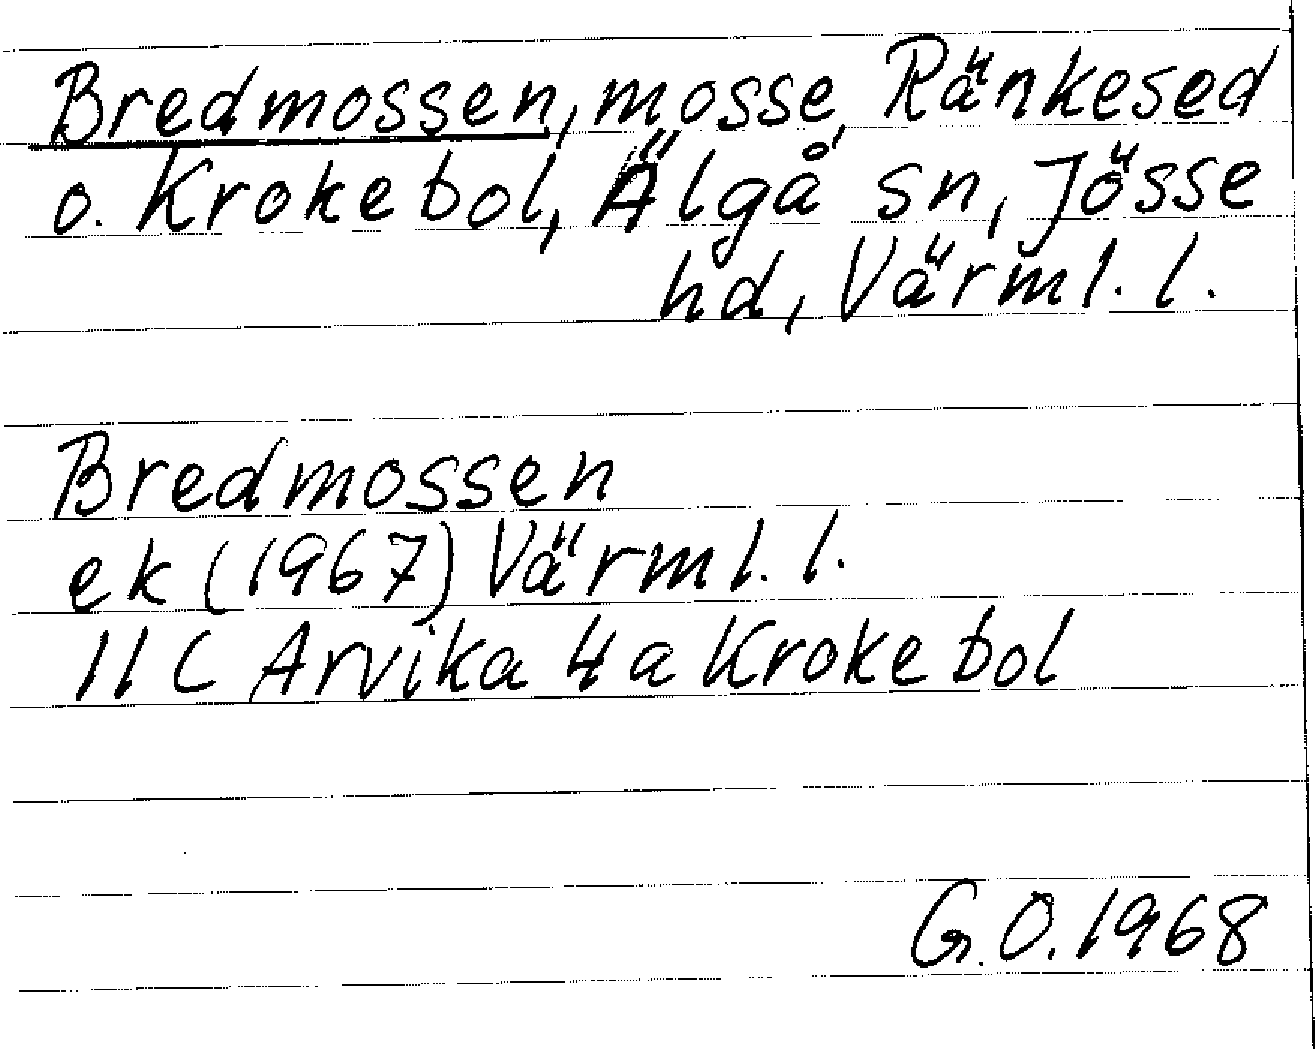 Bredmossen, mosse, Ränkesed
o. Krokebol, Älgå sn, Jösse
hd, Värml. l.
Bredmossen
ek (1967) Värml. l.
11 C Arvika 4a Krokebol
G.O. 1968